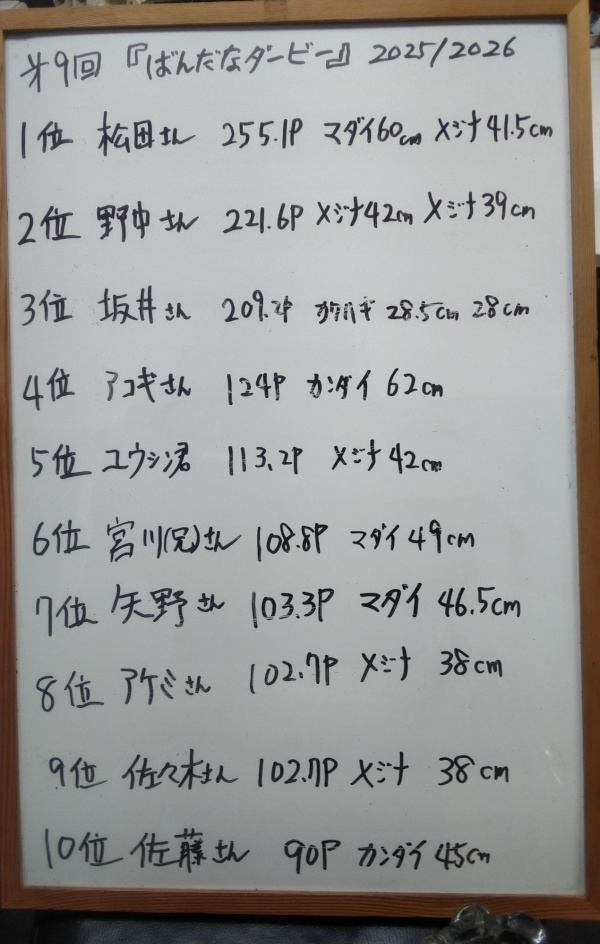 第9回『ばんだなダービー』2025/2026
1位 松田さん 255.1P マダイ60cm メジナ41.5cm
2位 野中さん 221.6P メジナ42cm メジナ39cm
3位 坂井さん 209.2P カワハギ 28.5cm 28cm
4位 アコギさん 124P カンダイ 62cm
5位 ユウシン君 113.2P メジナ42cm
6位 宮川(兄)さん 108.8P マダイ49cm
7位 矢野さん 103.3P マダイ 46.5cm
8位 アケミさん 102.7P メジナ 38cm
9位 佐々木さん 102.7P メジナ 38cm
10位 佐藤さん 90P カンダイ 45cm